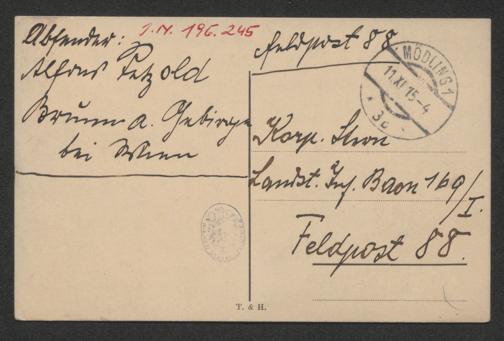 Absender:
Alfons Petzold
Brunn a. Gebirge
bei Wien
J.N. 196.245
Feldpost 88
MÖDLING 1
11.XI.15-4
* 3c *
Korp.
Landst. Inf. Baon 169/I.
Feldpost 88.
T. & H.